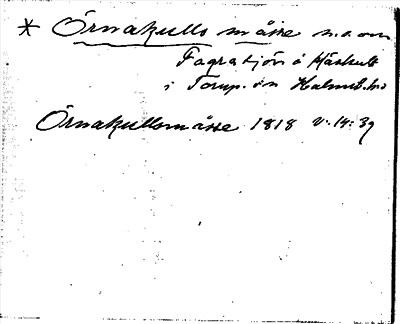 * Örnakulls måsse n. a om
Fagrasjön å Häskult
i Torup. sn Halmst. hd
Örnakullsmåsse 1818 V:14:39